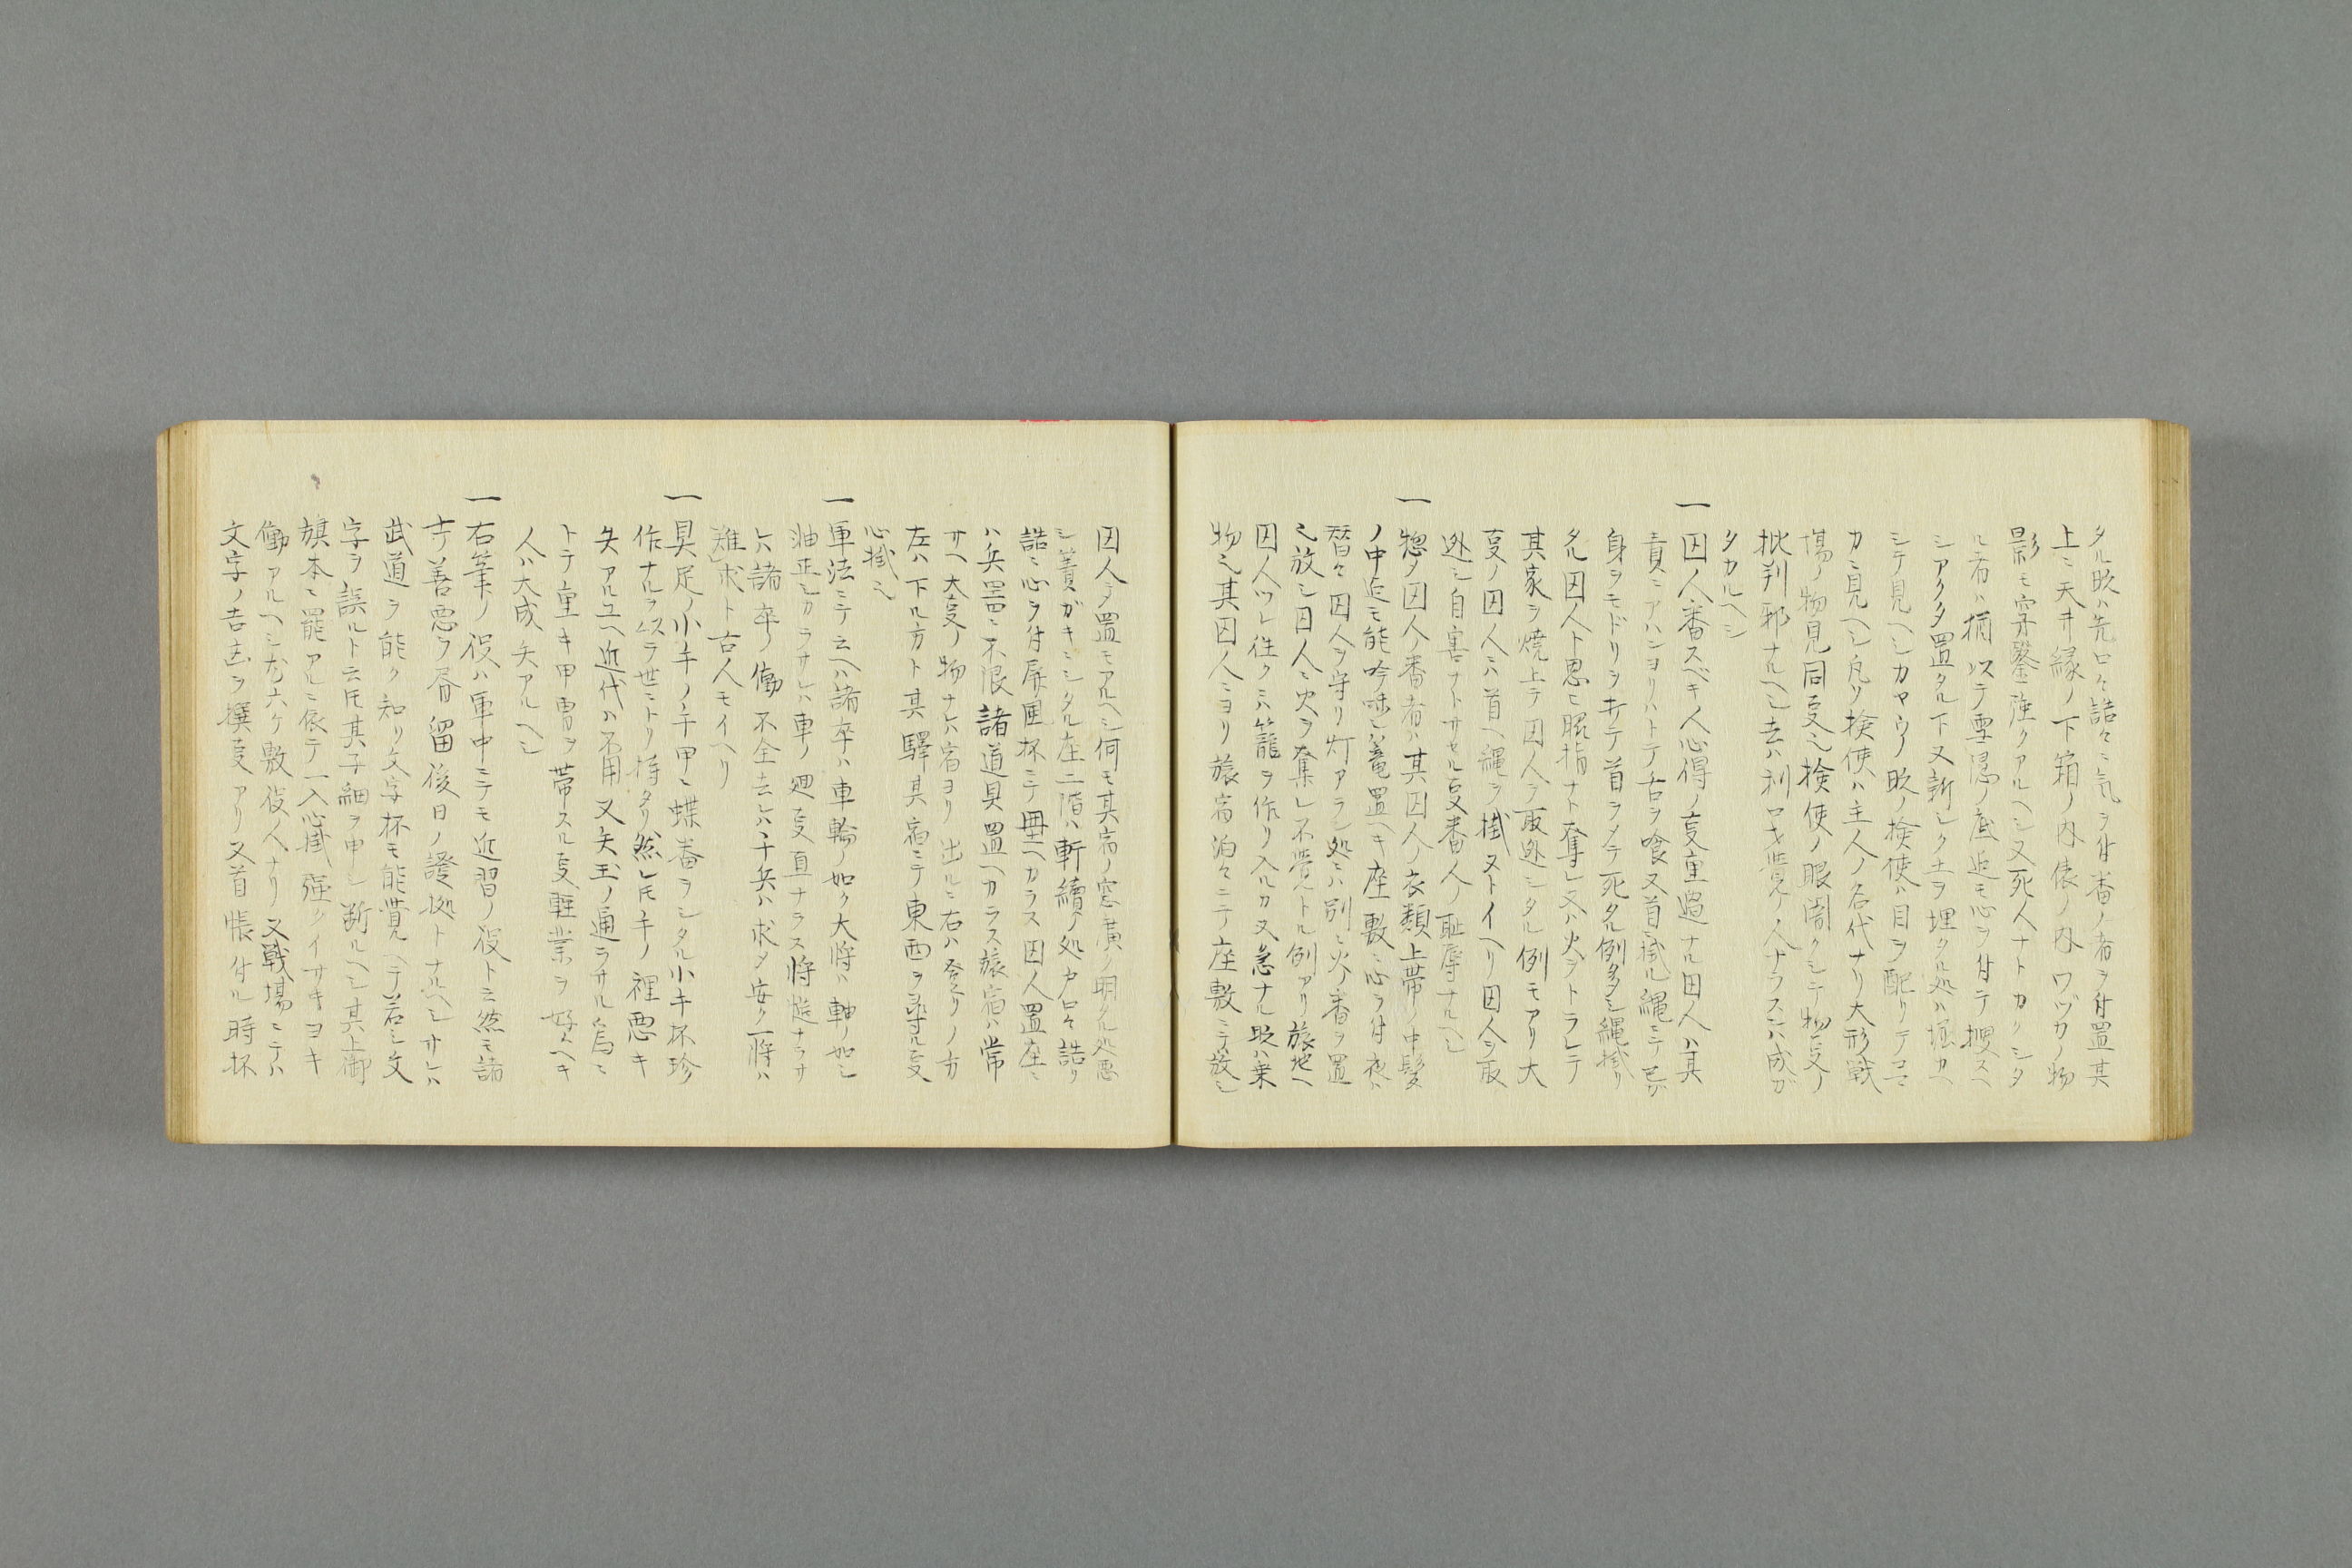 タル時ハ先口々詰々ニ気ヲ付番ノ者ヲ付置其
上ニ天井縁ノ下箱ノ内俵ノ内ワヅカノ物
影モ穿鑿強クアルヘシ又死人ナトカクシタ
ル者ハ桶以テ雪隠ノ底迄モ心ヲ付テ捜スヘ
シアクタ置タル下又新シク土ヲ埋タル処ハ堀カヘ
シテ見ヘシカヤウノ時ノ検使ハ目ヲ配リテコマ
カニ見ヘシ凡ソ検使ハ主人ノ名代ナリ大形戦
場ノ物見同㕝也検使ノ眼闇クシテ物㕝ノ
批判邪ナルヘシ去ハ利口才覚ノ人ナラスハ成ガ
タカルヘシ
一 囚人番スベキ人心得ノ㕝重過ナル囚人ハ其
責ニアハンヨリハトテ舌ヲ喰又首ニ掛ル縄ニテ己ガ
身ヲモドリヲキテ首ヲメテ死タル例多シ縄掛リ
タル囚人ト思ヒ脇指ナト奪レ又ハ火ヲトラレテ
其家ヲ焼上テ囚人ヲ取迯シタル例モアリ大
㕝ノ囚人ニハ首ヘ縄ヲ掛ヌトイヘリ囚人ヲ取
迯シ自害ナトサセル㕝番人ノ耻辱ナルヘシ
一 惣ノ囚人番者ハ其囚人ノ衣類上帯ノ中髪
ノ中迄モ能吟味シ篭置ヘキ座敷ニ心ヲ付夜ハ
替々囚人ヲ守リ灯アラン処ニハ別ニ火番ヲ置
也放シ囚人ニ火ヲ奪レ不覚トル例アリ旅地ヘ
囚人ツレ往クニハ籠ヲ作リ入ルカ又急ナル時ハ乗
物也其囚人ニヨリ旅宿泊々ニテ座敷ニテ放シ
囚人ヲ置モアルヘシ何モ其宿ノ窓裏ノ明タル処悪
シ簀ガキニシタル座二階ハ軒續ノ処戸口々詰リ
詰ニ心ヲ付屏囲杯ニテ毋ヘカラス囚人置座ニ
ハ兵器ニ不限諸道具置ヘカラス旅宿ハ常
サヘ大㕝ノ物ナレハ宿ヨリ出ルニ右ハ登リノ方
左ハ下ル方ト其驛其宿ニテ東西ヲ尋ル㕝
心掛也
一 軍法ニテ云ヘハ諸卒ハ車輪ノ如ク大将ハ軸ノ如シ
油正シカラサレハ車ノ廻㕝直ナラス将進ナラサ
レハ諸卒ノ働不全去レハ千兵ハ求タ安ク一将ハ
難求ト古人モイヘリ
一 具足ノ小手ノ手甲ニ蝶番ヲシタル小手杯珍
作ナルヲムスラ世ニトリ持タリ然レ𪜈手ノ裡悪キ
失アルユヘ近代ハ不用又矢玉ノ通ラサル為ニ
トテ重キ甲冑ヲ帯スル㕝軽業ヲ好ヘキ
人ハ大成失アルヘシ
一 右筆ノ役ハ軍中ニテモ近習ノ役ト云然モ諸
士ノ善悪ヲ眉留後日ノ證拠トナルヘシサレハ
武道ヲ能ク知リ文字杯モ能覚ヘテ若シ文
字ヲ誤ルト云𪜈其子細ヲ申シ断ルヘシ其上御
旗本ニ罷アルニ依テ一入心掛強クイサキヨキ
働アルヘシむ六ケ敷役人ナリ又戦場ニテハ
文字ノ吉凶ヲ撰㕝アリ又首帳付ル時杯